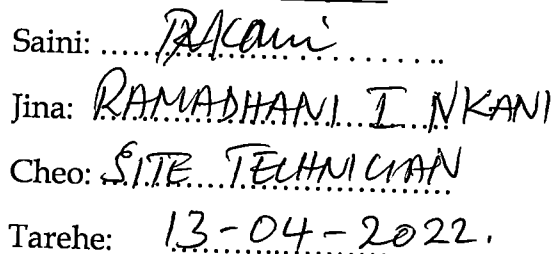 Saini: ..................
Jina: RAMADHANI I NKANI
Cheo: SITE TECHNICIAN
Tarehe: 13-04-2022.